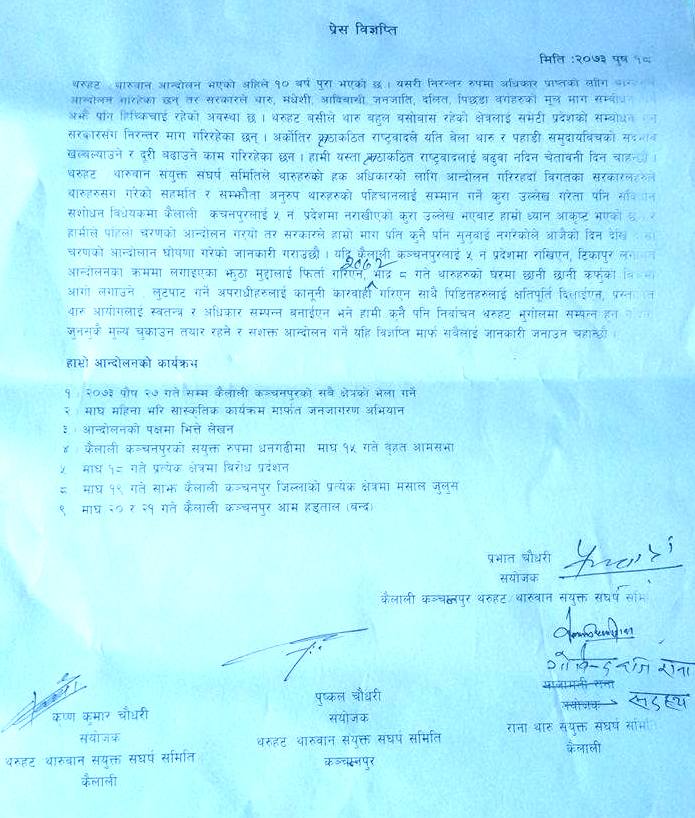 प्रेस विज्ञप्ति
मिति :२०७३ पुष १८
थरुहट थारुवान आन्दोलन भएको अहिले १० बर्ष पुरा भएको छ । यसरी निरन्तर रुपमा अधिकार प्राप्तको लागि
आन्दोलन गरिहेका छन् तर सरकारले थारु, मधेशी, आदिबासी, जनजाति, दलित, पिछडा वर्गहरुको मुल माग सम्बोधन
अझै पनि हिच्किचाई रहेको अवस्था छ । थरुहट बसीले थारु बहुल बसोवास रहेको क्षेत्रलाई समेटी प्रदेशको सम्बोधन
सरकारसंग निरन्तर माग गरिरहेका छन् । अर्कोतिर तथाकथित राष्ट्रवादले यति बेला थारु र पहाडी समुदायविचको
खल्बल्याउने र दुरी बढाउने काम गरिरहेका छन । हामी यस्ता तथाकथित राष्ट्रवादलाई बढुवा नदिन चेतावनी दिन चाहन्छौ ।
थरुहट थारुवान सयुक्त सघर्ष समितिले थारुहरुको हक अधिकारको लागि आन्दोलन गरिरहर्दा विगतका सरकारहरुले
थारुहरुसग गरेको सहमति र सम्झौता अनुरुप थारुहरुको पहिचानलाई सम्मान गर्ने कुरा उल्लेख गरेता पनि
सशोधन विधेयकमा कैलाली कचनपुरलाई ५ न प्रदेशमा नराखीएको कुरा उल्लेख भएबाट हाम्रो ध्यान आकृष्ट भएको छ
हामीले पहिलो चरणको आन्दोलन गर्‍यो तर सरकारले हाम्रो माग प्रति कुनै पनि सुनुवाई नगरेकोले आजैको दिन देखि
चरणको आन्दोलान घोषणा गरेको जानकारी गराउछौ । यदि कैलाली कञ्चनपुरलाई ५ न प्रदेशमा राखिएन, टिकापुर
आन्दोलनका क्रममा लगाइएका झुठा मुद्दालाई फिर्ता गरिएन, २०७२ भाद्र ८ गते थारुहरुको घरमा छानी छानी कर्फुका
आगो लगाउने , लुटपाट गर्ने अपराधीहरुलाई कानूनी कारवाही गरिएन साथै पिडितहरुलाई क्षतिपूर्ति दिलाईएन,
थारु आयोगलाई स्वतन्त्र र अधिकार सम्पन्न बनाईएन भने हामी कुनै पनि निर्वाचन थरुहट भुगोलमा सम्पन्न हुन
जुनसुकै मुल्य चुकाउन तयार रहने र सशक्त आन्दोलन गर्ने यहि विज्ञप्ति मार्फ सबैलाई जानकारी जनाउन चहान्छौ ।
हाम्रो आन्दोलनको कार्यक्रम
१ २०७३ पौष २७ गते सम्म कैलाली कञ्चनपुरको सवै क्षेत्रको भेला गर्ने
२ माघ महिना भरि सास्कृतिक कार्यक्रम मार्फत जनजागरण अभियान
३ आन्दोलनको पक्षमा भित्ते लेखन
४ कैलाली कञ्चनपुरको सयुक्त रुपमा धनगढीमा माघ १५ गते वृहत आमसभा
५ माघ १८ गते प्रत्येक क्षेत्रमा बिरोध प्रदेशन
८ माघ १९ गते साझ कैलाली कञ्चनपुर जिल्लाको प्रत्येक क्षेत्रमा मसाल जुलुस
९ माघ २० र २१ गते कैलाली कञ्चनपुर आम हड्ताल (बन्द)
प्रभात चौधरी
सयोजक
कैलाली कञ्चनपुर थरुहट थारुवान सयुक्त सघर्ष समिति
राना
सदस्य
राना थारु सयुक्त सघर्ष समिति
कैलाली
पुष्कल चौधरी
सयोजक
थरुहट थारुवान सयुक्त सघर्ष समिति
कञ्चनपुर
कृष्ण कुमार चौधरी
सयोजक
थरुहट थारुवान सयुक्त सघर्ष समिति
कैलाली